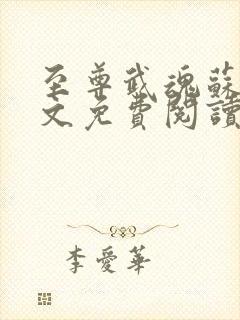 至尊武魂蘇
文免費閱讀
李愛華